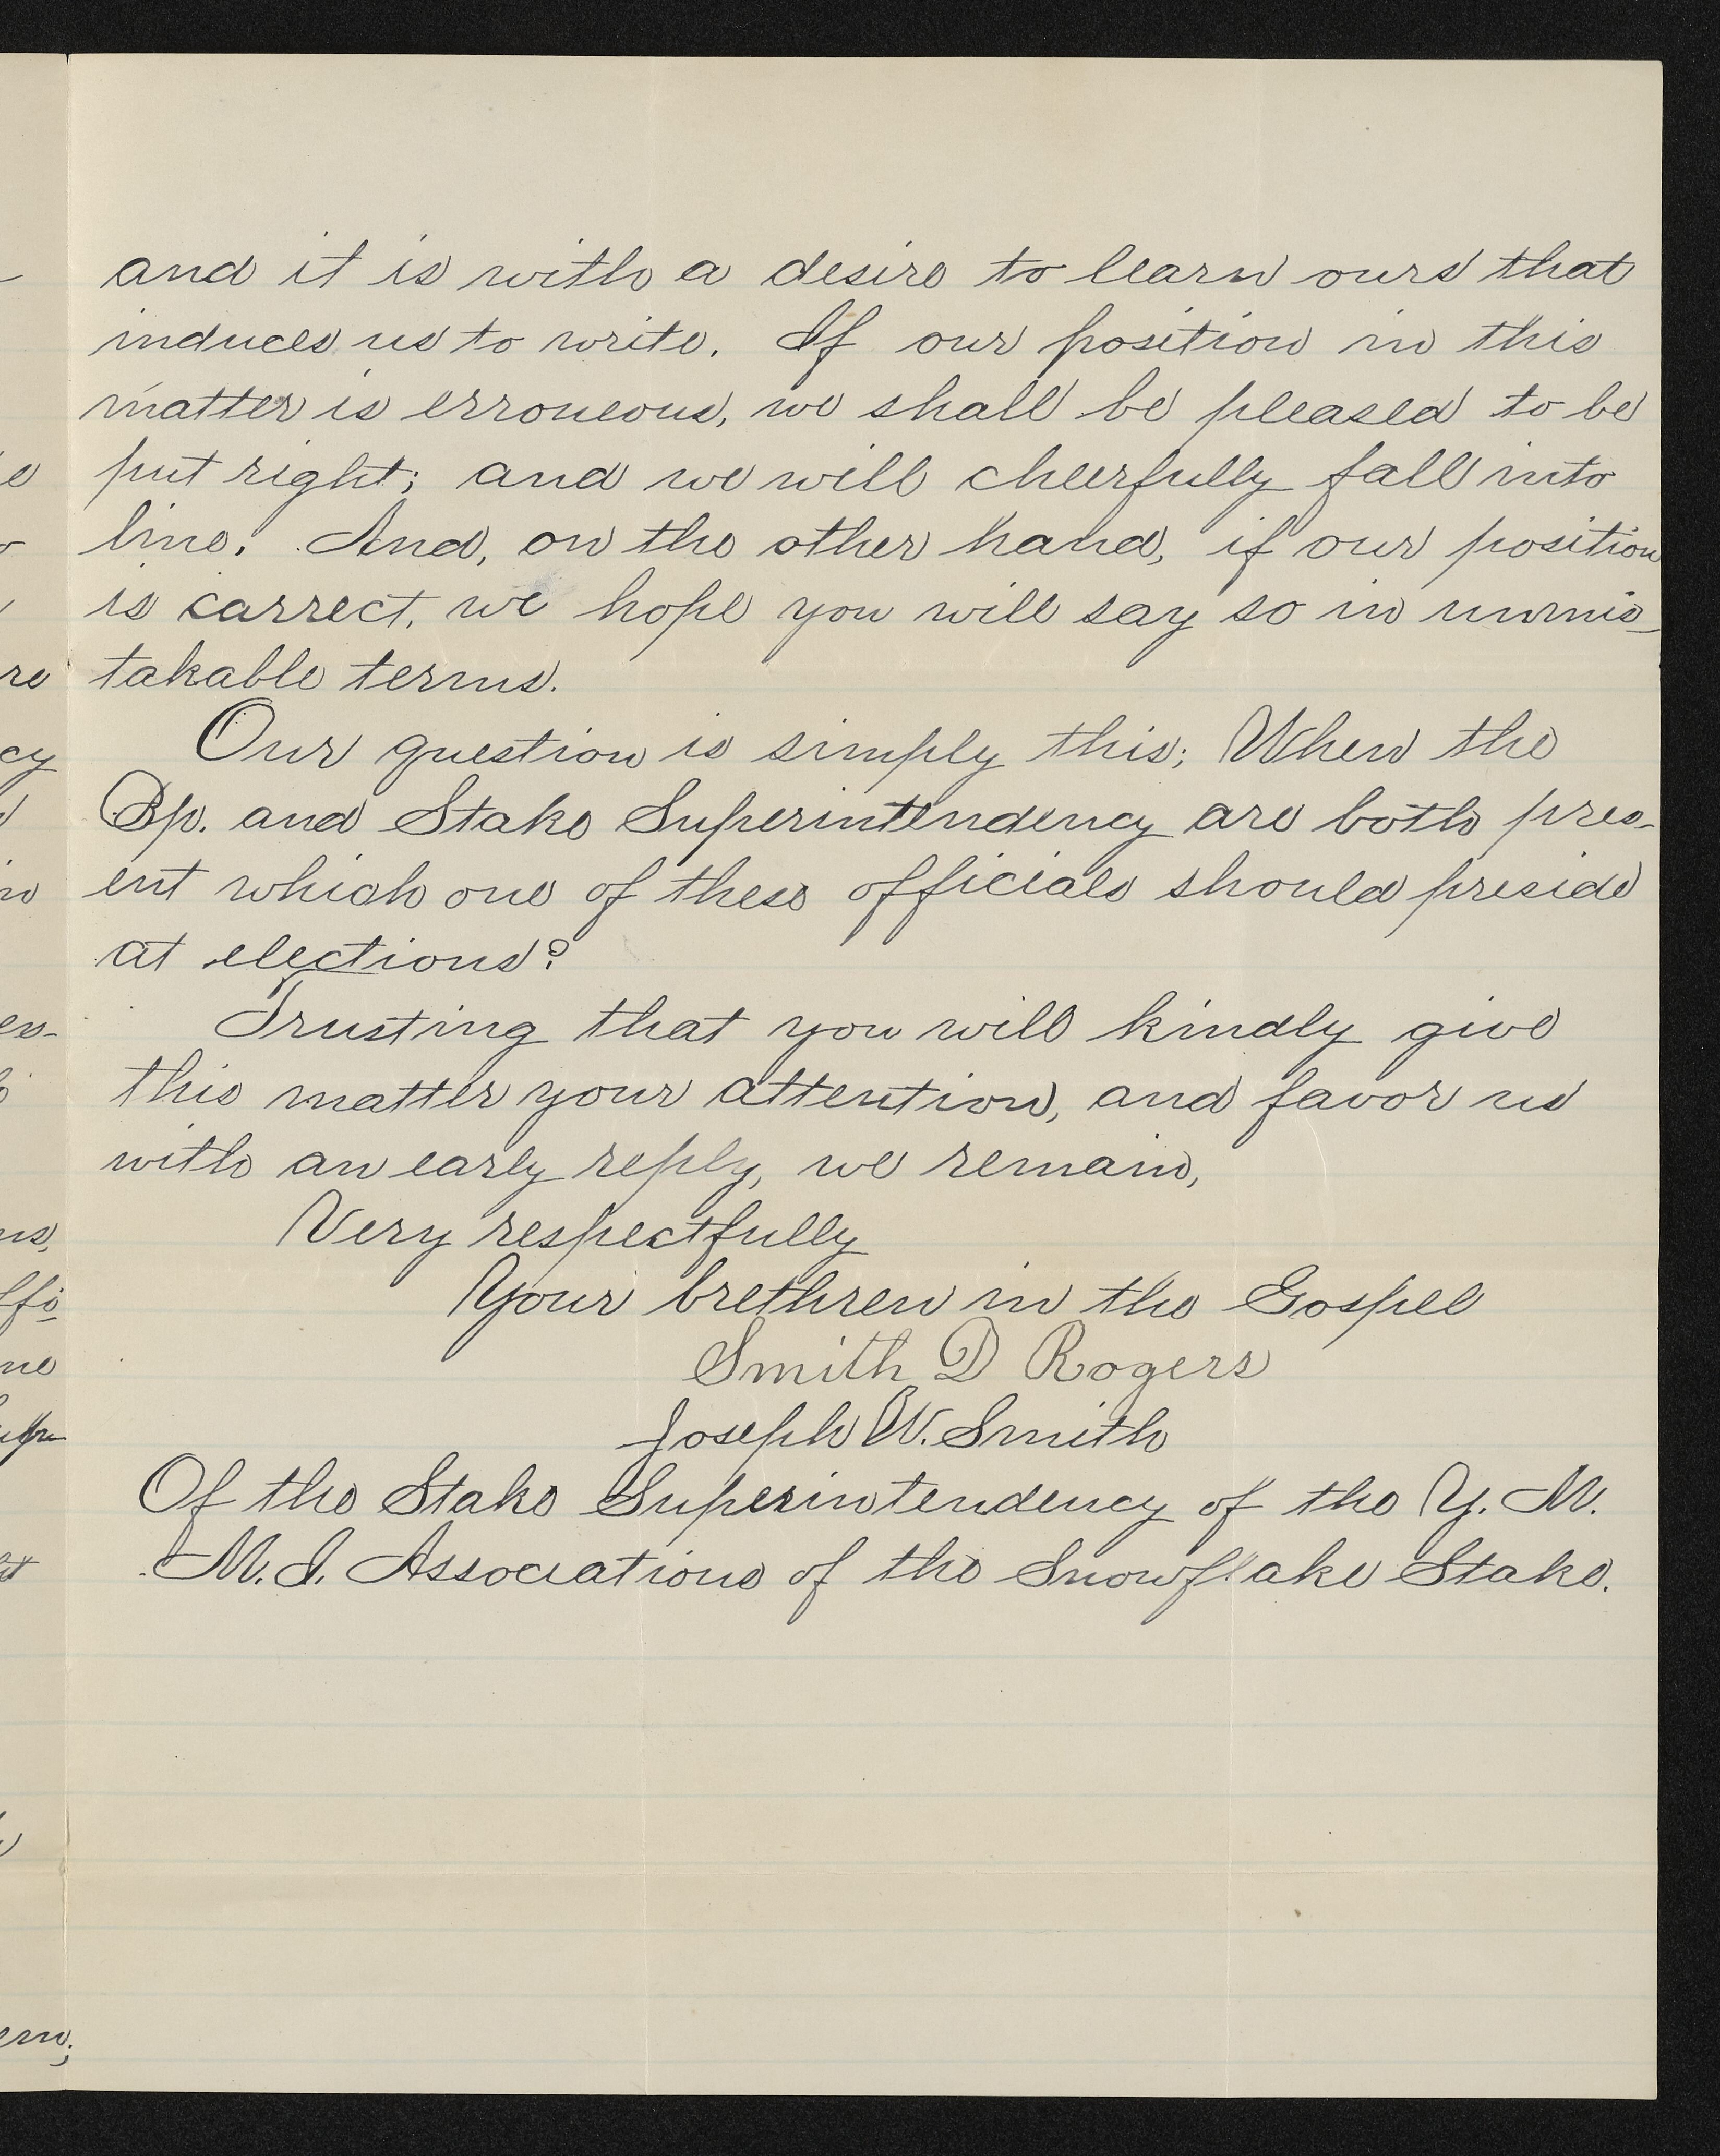 and it is with a desire to learn ours that
induces us to write. If our position in this
matter is erroneous, we shall be pleased to be
put right; and we will cheerfully fall into
line. And, on the other hand, if our position
is correct, we hope you will say so in unmis-
takable terms.
Our question is simply this; When the
Bp. and Stake Superintendency are both pres-
ent which one of these officials should preside
at elections?
Trusting that you will kindly give
this matter your attention, and favor us
with an early reply, we remain,
Very respectfully
Your brethren in the Gospel
Smith D Rogers
Joseph W. Smith
Of the Stake Superintendency of the Y. M.
M. I. Associations of the Snowflake Stake.